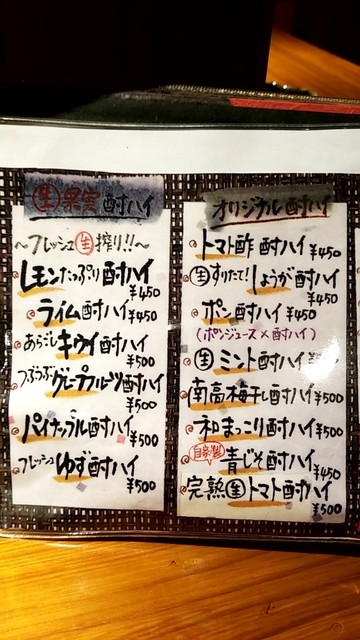 生果実酎ハイ
～フレッシュ生搾り!!～
レモンたっぷり酎ハイ
¥450
ライム酎ハイ¥450
あらごしキウイ酎ハイ
¥500
つぶつぶグレープフルーツ酎ハイ
¥500
パイナップル酎ハイ
¥500
フレッシュゆず酎ハイ
¥500
オリジナル酎ハイ
トマト酢酎ハイ¥450
生すりたて!しょうが酎ハイ
¥450
ポン酎ハイ¥450
(ポンジュース×酎ハイ)
生ミント酎ハイ
南高梅干し酎ハイ¥500
和まっこり酎ハイ¥500
自家製青じそ酎ハイ
¥450
完熟生トマト酎ハイ
¥500